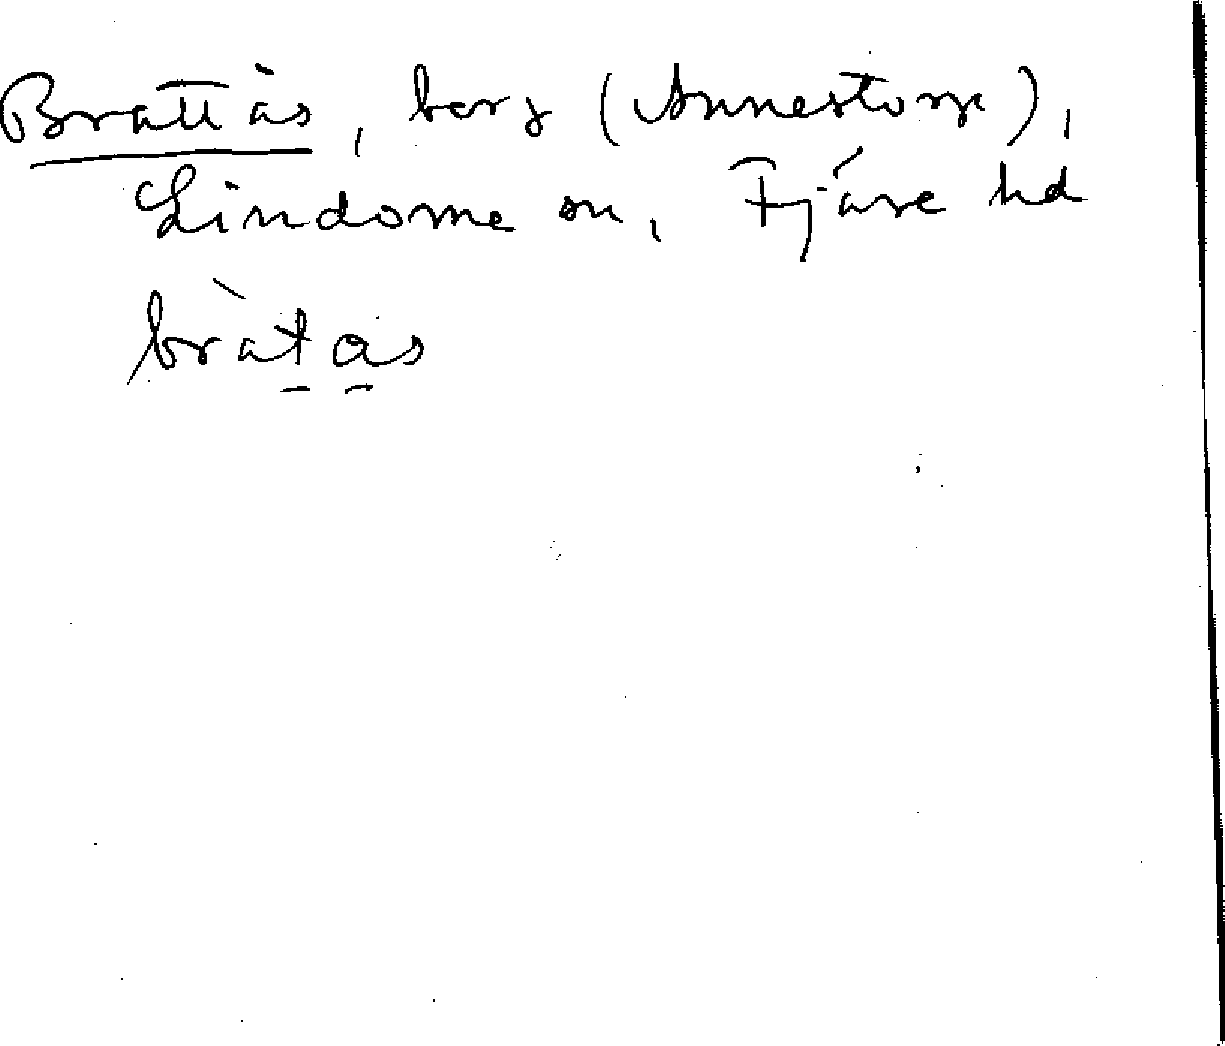 Brattås, berg (Annestorp),
Lindome sn, Fjäre hd
bràtas